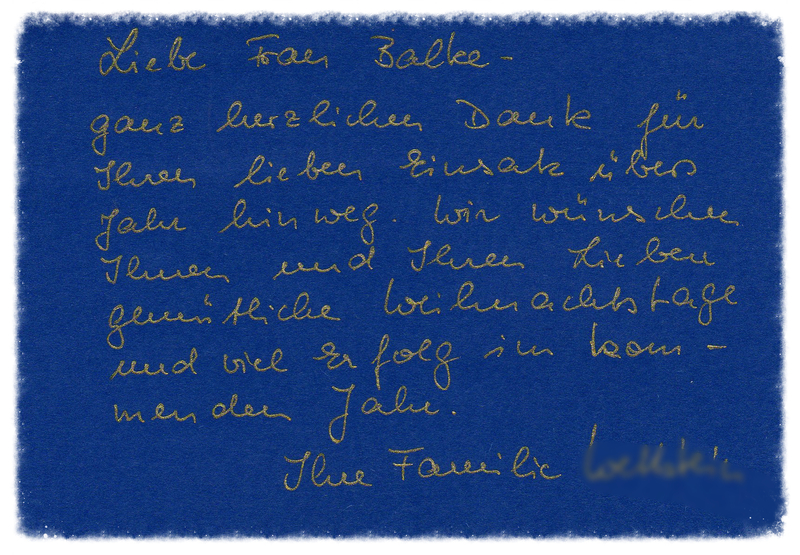 Liebe Frau Balke -
ganz herzlichen Dank für
Ihren lieben Einsatz übers
Jahr hinweg. Wir wünschen
Ihnen und Ihren Lieben
gemütliche Weihnachtstage
und viel Erfolg im kom-
menden Jahr.
Ihre Familie